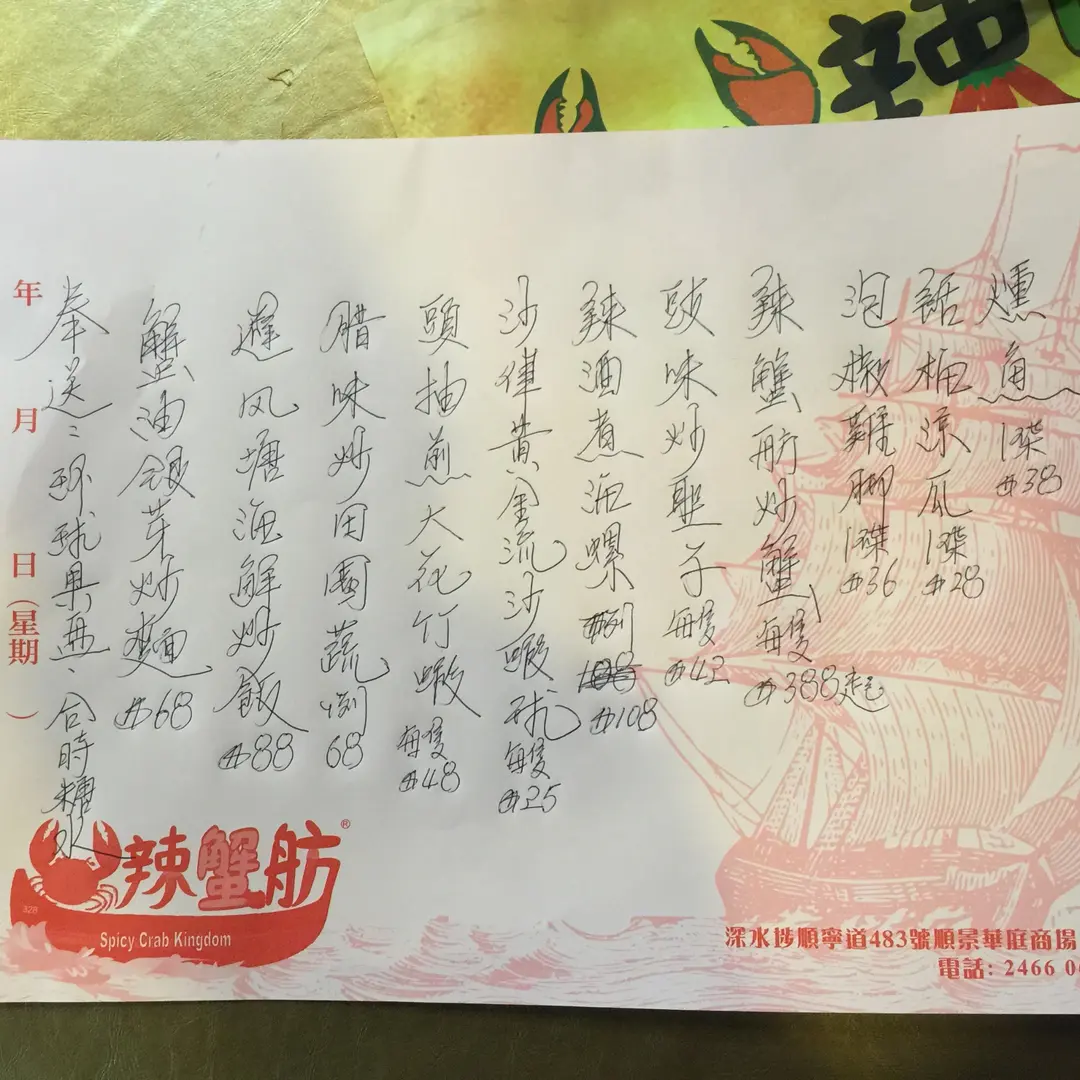 辣
燻魚 1碟 $38
話梅涼瓜 1碟 $28
泡椒雞脚 1碟 $36
辣蟹舫炒蟹 每隻 $388起
豉味炒聖子 每隻 $42
辣酒煮海螺 例 $108
沙律黃金流沙蝦球 每隻 $25
頭抽煎大花竹蝦 每隻 $48
腊味炒田園蔬 例 68
避风塘海鮮炒飯 $88
蟹油銀芽炒麵 $68
奉送: 环球果盘、合時糖水
年 月 日(星期 )
辣蟹舫®
328
Spicy Crab Kingdom
深水埗順寧道483號順景華庭商場
電話: 2466 0